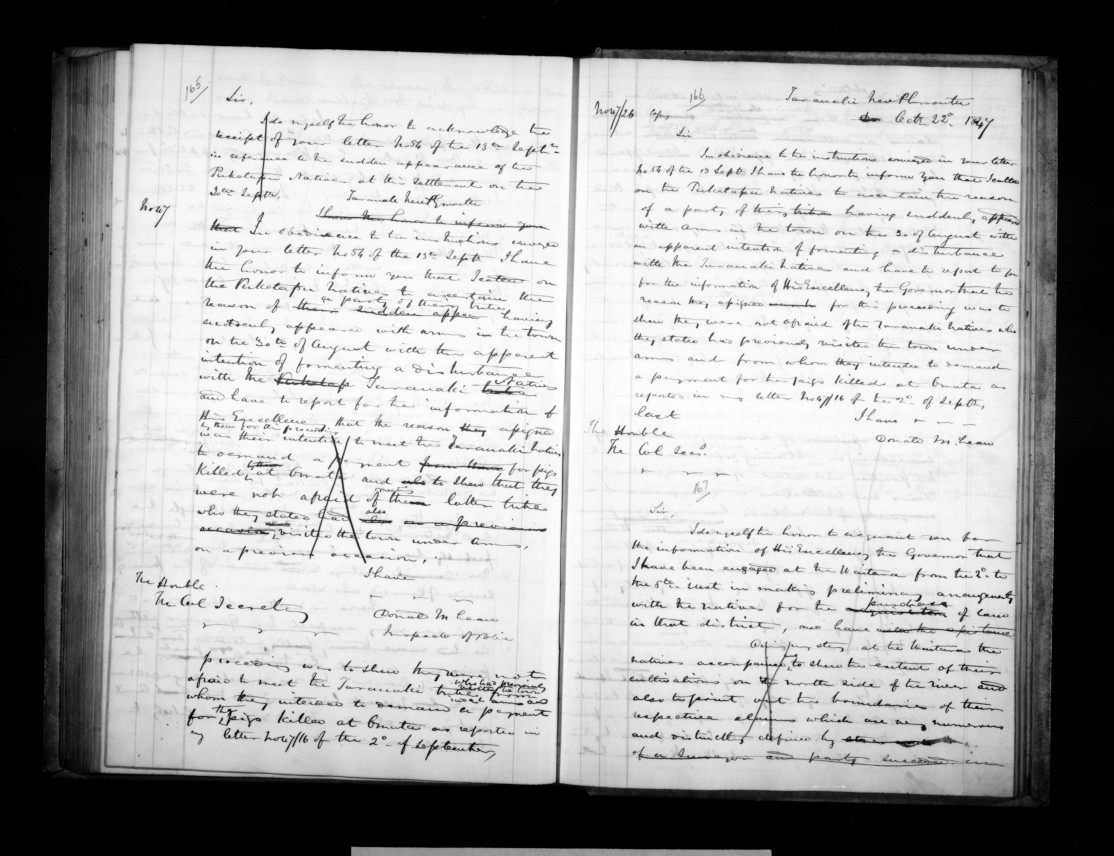 165
Sir,
I do myself the honor to acknowledge the
receipt of your letter No 54 of the 13th Septr
in reference to the sudden appearance of the
Puketapu Natives at this Settlement on the
30th Septr.
Taranaki New Plymouth
No 47
I have the honor to inform you
that In obedience to the instructions conveyed
in your letter No 54 of the 13th Septr I have
the honor to inform you that I called on
the Puketapu Natives to ascertain the
reason of their sudden appear a party of their tribe having
suddenly appeared with arms in the town
on the 30th of August with the apparent
intention of fomenting a disturbance
with the Puketapu Taranaki Natives
and have to report for the information of
His Excellency that the reason they assigned
by them for this proceeding
was their intention to meet the Taranaki Natives
to demand a payment from them for pigs
killed at Omata and also to shew that they
were not afraid of the latter tribe
who they stated had also on a previous
occasion visited the town under arms,
on a previous occasion,
I have
The Honble
The Col Secretary
Donald McLean
Inspector of Police
proceeding was to shew they were not
afraid to meet the Taranaki tribe who had previously visited the town with arms and from
whom they intended to demand a payment
for the pigs killed at Omata as reported in
my letter No 47/16 of the 2d of September,
166
Taranaki New Plymouth
No 47/26 Copy
Octr 22d 1847
Sir
In obedience to the instructions conveyed in your letter
No 54 of the 13 Septr I have the honor to inform you that I called
on the Puketapu Natives to ascertain the reason
of a party of this tribe having suddenly appeared
with arms in the town on the 30 of August with
an apparent intention of fomenting a disturbance
with the Taranaki Natives and have to report to you
for the information of His Excellency the Governor that the
reason they assigned for this proceeding was to
shew they were not afraid of the Taranaki Natives who
they stated had previously visited the town under
arms and from whom they intended to demand
a payment for the pigs killed at Omata as
reported in my letter No 47/16 of the 2d of Septr,
last
I have
Donald McLean
The Honble
The Col Secr.
167
Sir,
I do myself the honor to acquaint you for
the information of His Excellency the Governor that
I have been engaged at the Waitara from the 2d to
the 5th inst in making preliminary arrangements
with the natives for the purchase of land
in that district, and have
During my stay at the Waitara the
natives accompanied to shew the extent of their
cultivations on the north side of the river and
also to point out the boundaries of their
respective claims which are very numerous
and distinctly defined by
of a Surveyor and party